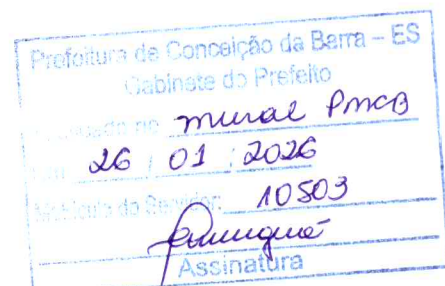 Prefeitura de Conceição da Barra – ES
Gabinete do Prefeito
no mural PMCB
26 / 01 / 2026
Matrícula do Servidor: 10503
Assinatura